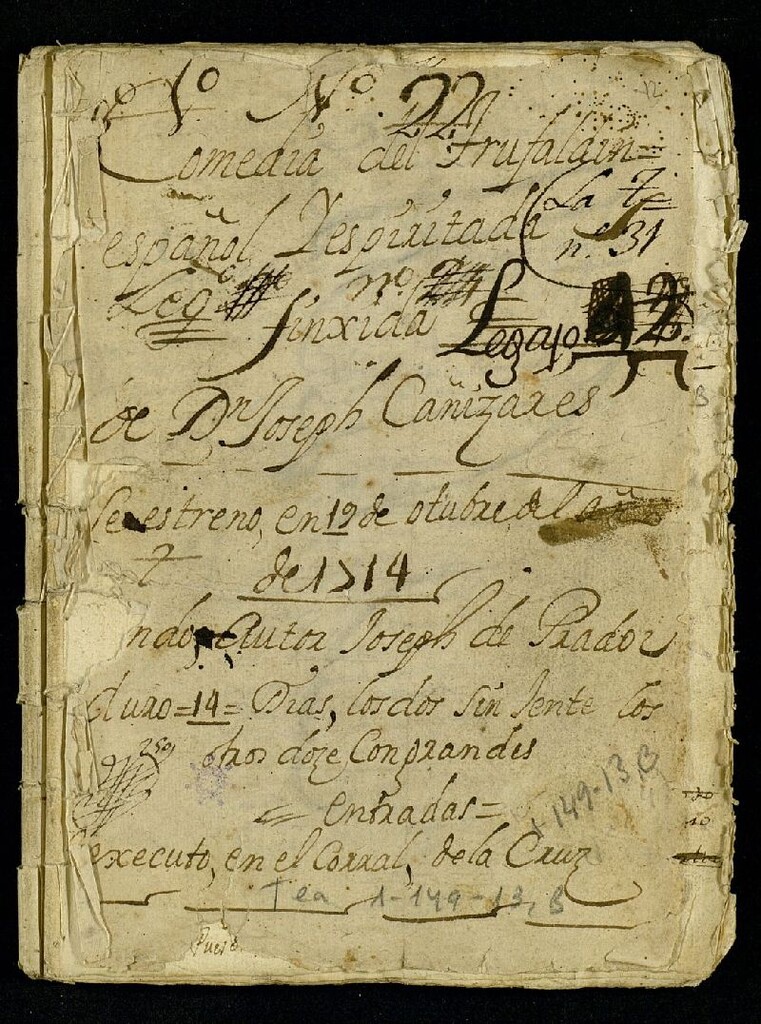 Nº 22
Comedia del Trufalain=
español, Y espiritada
La 7
n.º 31
Leg.º nº
finxida Legajo 12
de Dn Joseph Cañizares
Se estreno, en 19 de otubre del
de 1714
ndo, Autor Joseph de Prado Y
duro =14= Dias, los dos sin Jente los
otros doze Con grandes
= entradas =
executo, en el Corral, de la Cruz
1-149-13, B
Tea 1-149-13, B